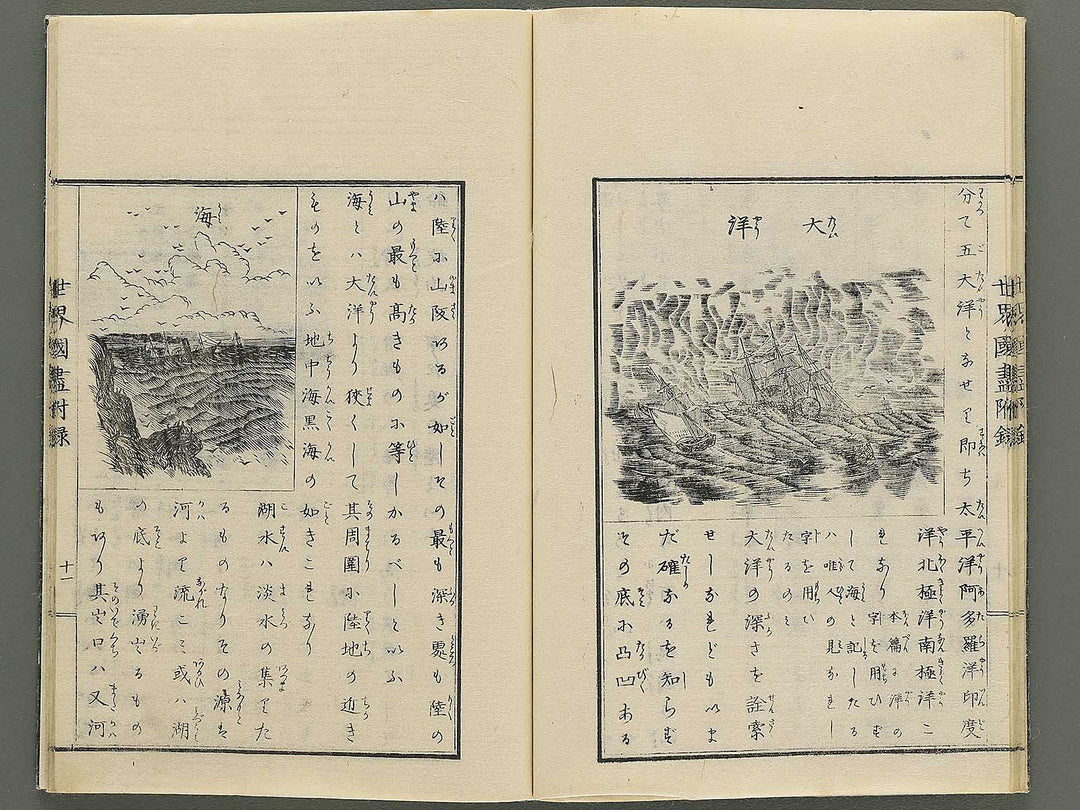 世界國盡附錄
大洋
分て五大洋となせり即ち太平洋阿多羅洋印度
洋北極洋南極洋こ
れなり
本篇に洋の
字を用ひず
して海と記したる
ハ唯人の見なれし
字を用い
たるのと
大洋の深さを詮索
せしなれどもいま
だ確なるを知らず
その底に凸凹ある
ハ陸に山阪あるが如しその最も深き處も陸の
山の最も高きものに等しかるべしといふ
海とハ大洋より狹くして其周圍に陸地の近き
ものをいふ地中海黒海の如きこれなり
海
湖水ハ淡水の集りた
るものなりその源は
河より流こミ或ハ湖
の底より湧出るもの
もあり其出口ハ又河
世界國盡附録
十一